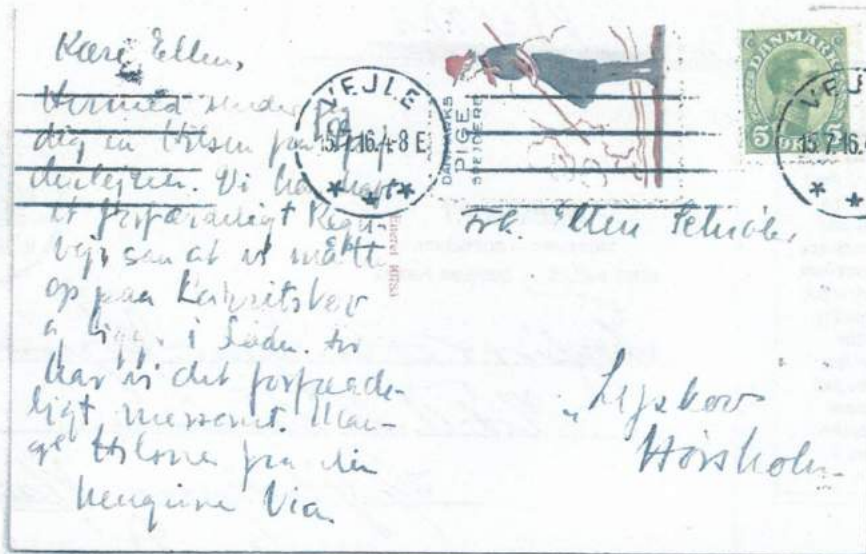 Kære Ellen,
Hermed sender jeg
dig en Hilsen fra
derlejren. Vi har havt
et forfærdeligt Regn-
vejr saa at vi maatte
op paa
i Laden. Nu
har vi det forfærde-
ligt morsomt. Man-
ge Hilsner fra din
hengivne Via.
VEJLE
15.7.16. 4-8 E.
DANMARKS
PIGE
SPEJDERE
DANMARK
5 ØRE 5
VEJ
15.7.16.
Frk. Ellen
Hørsholm